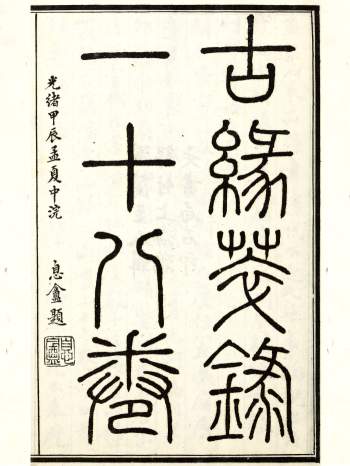 古緣萃錄
一十八卷
光緒甲辰孟夏中浣
息盦題